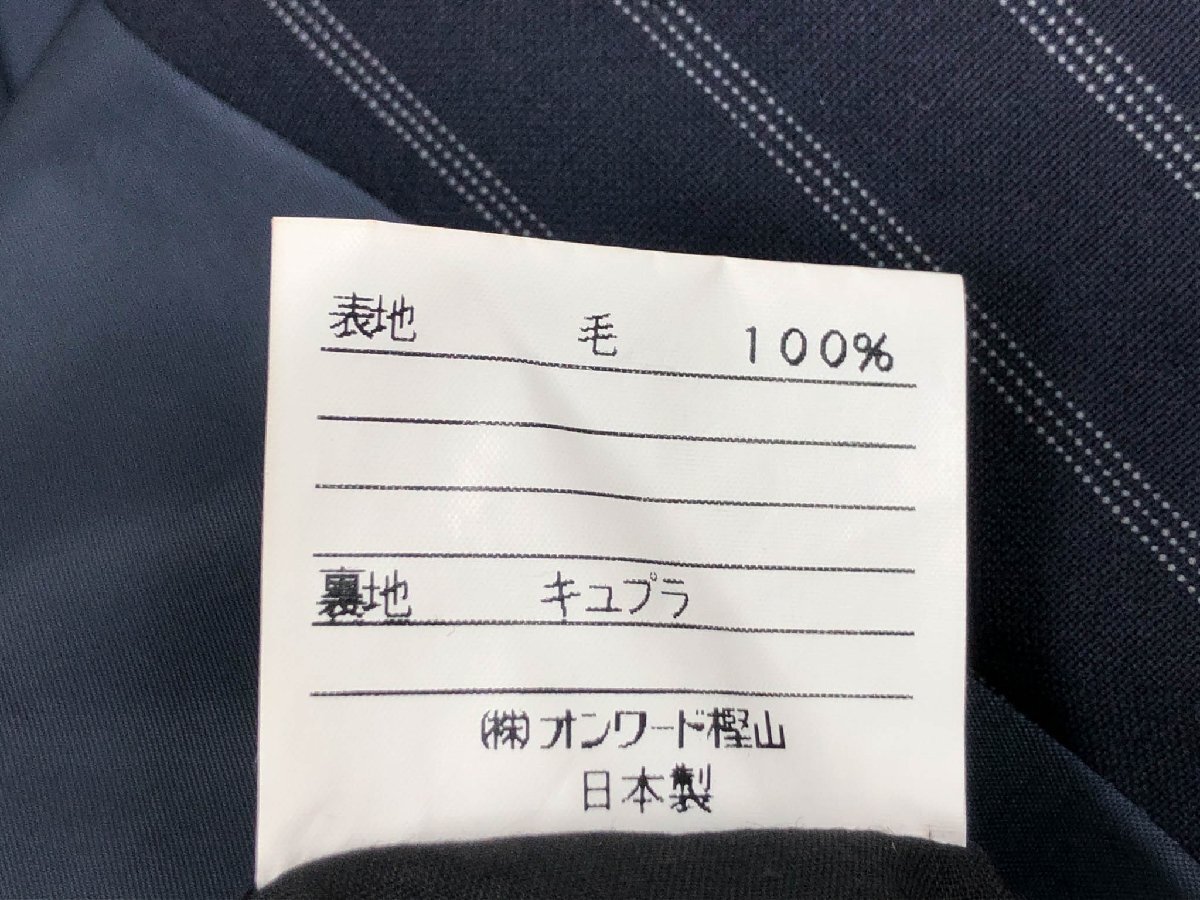 表地 毛 100%
裏地 キュプラ
(株)オンワード樫山
日本製